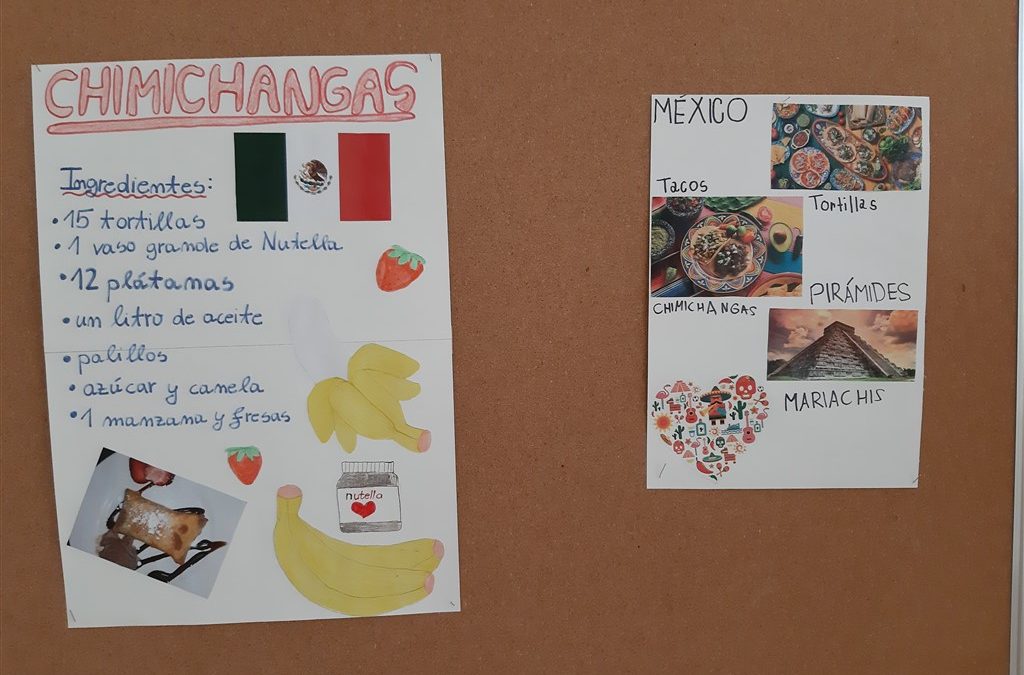 CHIMICHANGAS
Ingredientes:
• 15 tortillas
• 1 vaso grande de Nutella
• 12 plátanas
• un litro de aceite
• palillos
• azúcar y canela
• 1 manzana y fresas
nutella
MÉXICO
Tacos
Tortillas
CHIMICHANGAS
PIRÁMIDES
MARIACHIS